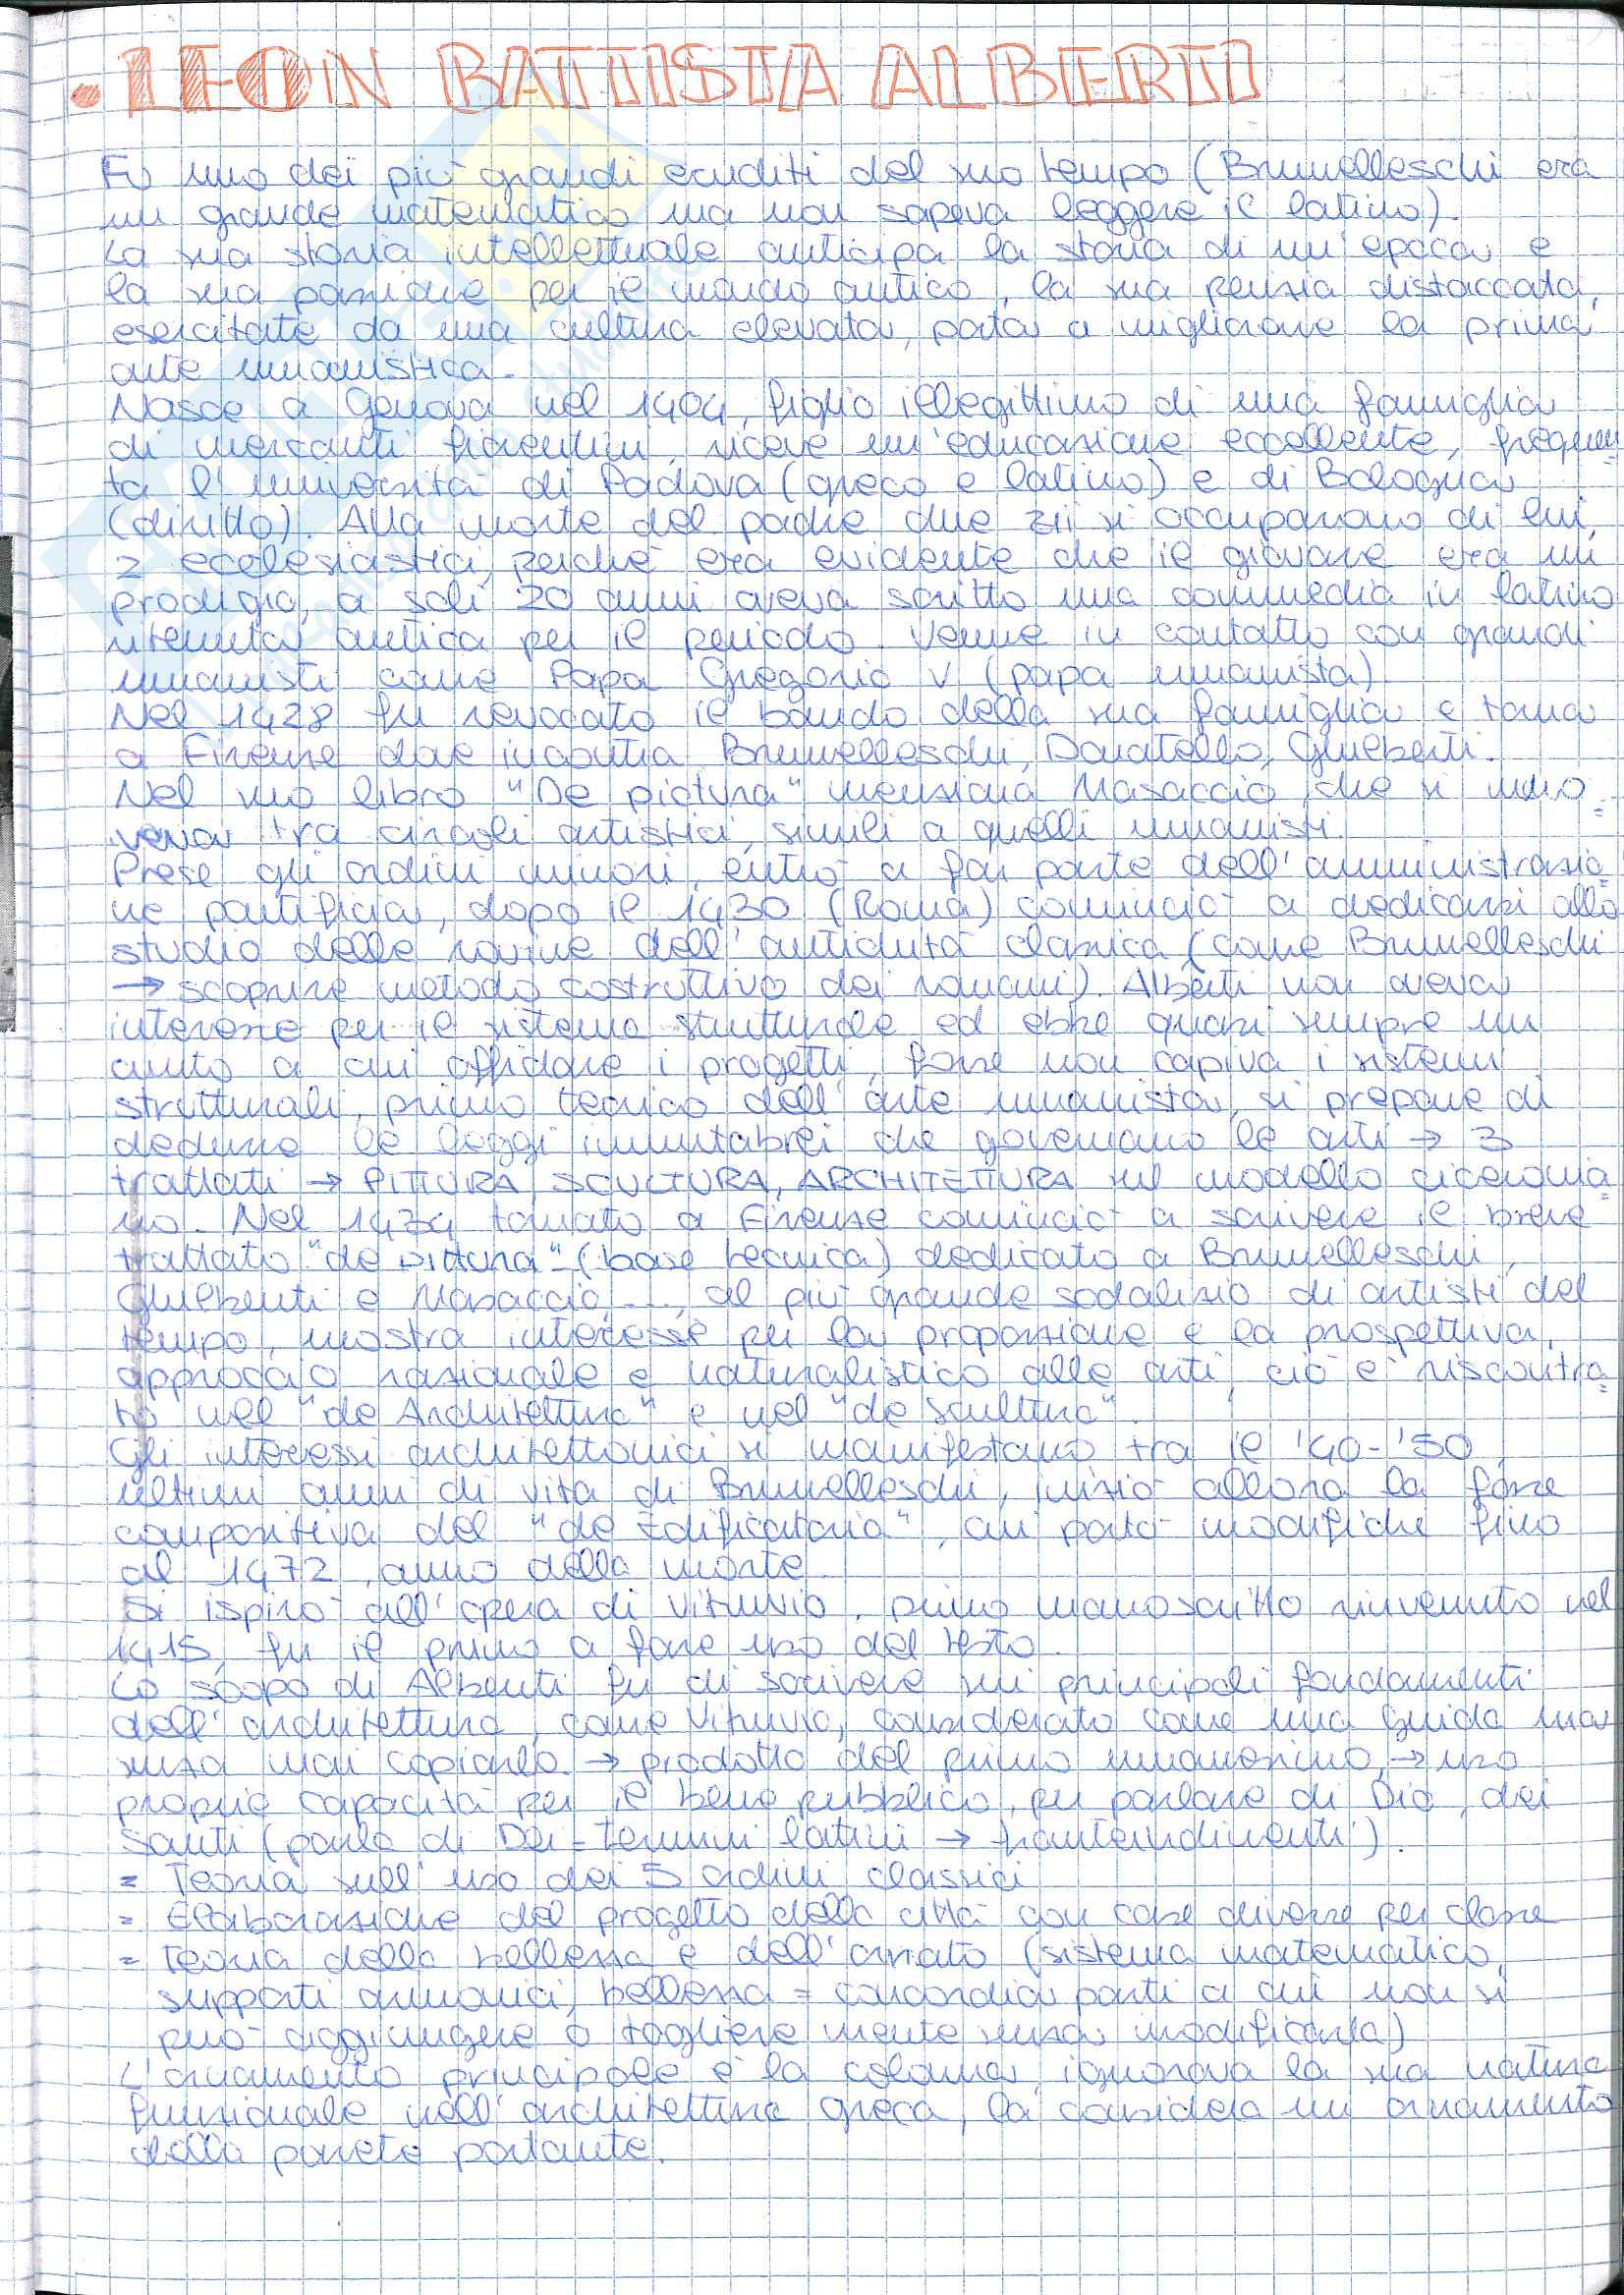 • LEON BATTISTA ALBERTI
Fu uno dei più grandi eruditi del suo tempo (Brunelleschi era
un grande matematico ma non sapeva leggere il latino).
La sua storia intellettuale anticipa la storia di un'epoca e
la sua passione per il mondo antico, la sua perizia distaccata,
esercitate da una cultura elevata, porta a migliorare la prima
arte umanistica.
Nasce a Genova nel 1404, figlio illegittimo di una famiglia
di mercanti fiorentini, riceve un'educazione eccellente, frequen=
ta l'università di Padova (greco e latino) e di Bologna
(diritto). Alla morte del padre due zii si occuparono di lui,
2 ecclesiastici, perché era evidente che il giovane era un
prodigio, a soli 20 anni aveva scritto una commedia in latino
ritenuta antica per il periodo. Venne in contatto con grandi
umanisti come Papa Gregorio V (papa umanista)
Nel 1428 fu revocato il bando della sua famiglia e torna
a Firenze dove incontra Brunelleschi, Donatello, Ghiberti.
Nel suo libro "De pictura" menziona Masaccio, che si muo=
veva tra circoli artistici, simili a quelli umanisti.
Prese gli ordini minori, entrò a far parte dell'amministrazio=
ne pontificia, dopo il 1430 (Roma) cominciò a dedicarsi allo
studio delle rovine dell'antichità classica (come Brunelleschi
→ scoprire metodo costruttivo dei romani). Alberti non aveva
interesse per il sistema strutturale ed ebbe quasi sempre un
aiuto a cui affidare i progetti, forse non capiva i sistemi
strutturali, primo tecnico dell'arte umanista, si propone di
dedurre le leggi immutabili che governano le arti → 3
trattati → PITTURA, SCULTURA, ARCHITETTURA sul modello ciceronia=
no. Nel 1434 tornato a Firenze cominciò a scrivere il breve
trattato "de pittura" (base tecnica) dedicato a Brunelleschi,
Ghiberti e Masaccio, ..., al più grande sodalizio di artisti del
tempo, mostra interesse per la proporzione e la prospettiva,
approccio razionale e naturalistico alle arti, ciò è riscontra=
to nel "de Architettura" e nel "de scultura".
Gli interessi architettonici si manifestano tra il '40-'50,
ultimi anni di vita di Brunelleschi, iniziò allora la fase
compositiva del "de Edificatoria", cui portò modifiche fino
al 1472, anno della morte
Si ispirò all'opera di Vitruvio, primo manoscritto rinvenuto nel
1415, fu il primo a fare uso del testo
Lo scopo di Alberti fu di scrivere sui principali fondamenti
dell'architettura, come Vitruvio, considerato come una guida ma
senza mai copiarlo → prodotto del primo umanesimo, → uso
proprie capacità per il bene pubblico, per parlare di Dio, dei
Santi (parla di Dei - termini latini → fraintendimenti).
= Teoria sull'uso dei 5 ordini classici
= Elaborazione del progetto della città con case diverse per classe
= Teoria della bellezza e dell'ornato (sistema matematico,
supporti armonici, bellezza = concordia parti a cui non si
può aggiungere o togliere niente senza modificarla)
L'ornamento principale è la colonna, ignorava la sua natura
funzionale nell'architettura greca, la considera un ornamento
della parete portante.